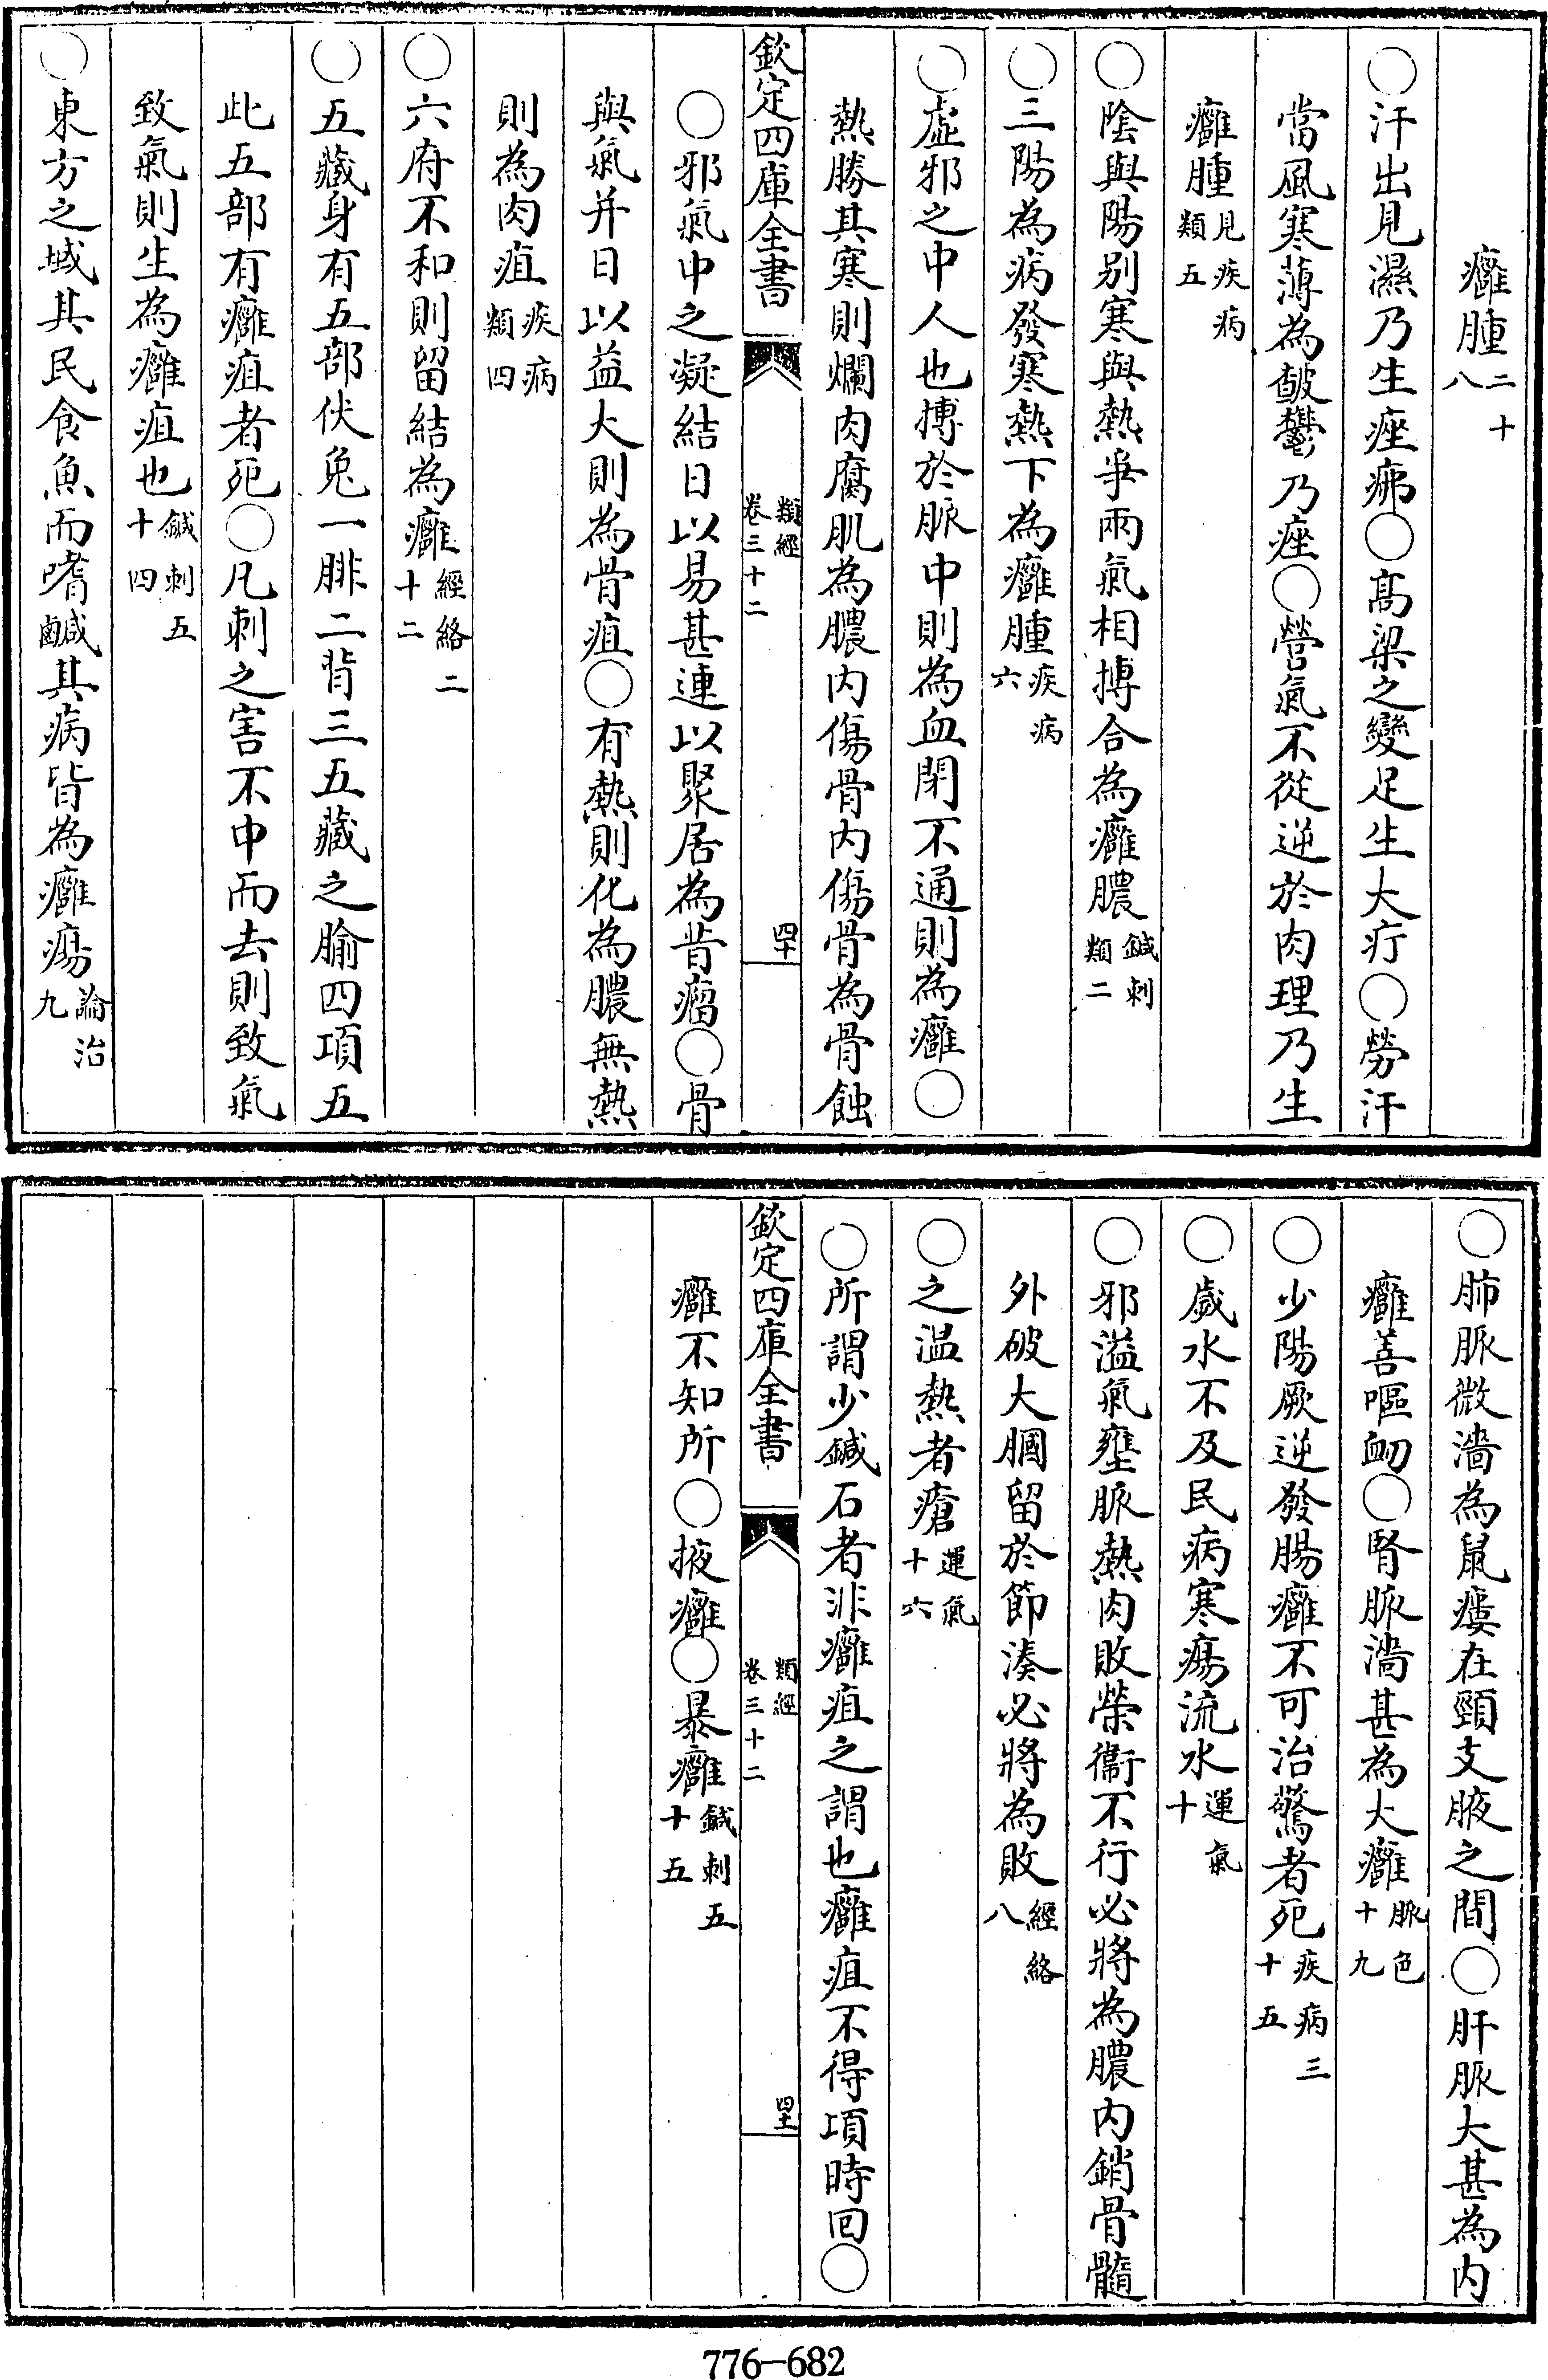 癰腫二十八
○汗出見濕乃生痤疿○髙梁之變足生大疔○勞汗
當風寒薄為皶鬱乃痤○營氣不從逆於肉理乃生
癰腫見疾病類五
○陰與陽别寒與熱爭兩氣相搏合為癰膿鍼刺類二
○三陽為病發寒熱下為癰腫疾病六
○虛邪之中人也搏於脈中則為血閉不通則為癰○
熱勝其寒則爛肉腐肌為膿内傷骨内傷骨為骨蝕
欽定四庫全書 類經卷三十二 四十
○邪氣中之凝結日以易甚連以聚居為昔瘤○骨
與氣并日以益大則為骨疽○有熱則化為膿無熱
則為肉疽疾病類四
○六府不和則留結為癰經絡二十二
○五藏身有五部伏兔一腓二背三五藏之腧四項五
此五部有癰疽者死○凡刺之害不中而去則致氣
致氣則生為癰疽也鍼刺五十四
○東方之域其民食魚而嗜鹹其病皆為癰瘍論治九
○肺脈微濇為鼠瘻在頸支腋之間○肝脈大甚為内
癰善嘔衂○腎脈濇甚為大癰脈色十九
○少陽厥逆發腸癰不可治驚者死疾病三十五
○歲水不及民病寒瘍流水運氣十
○邪溢氣壅脈熱肉敗榮衞不行必將為膿内銷骨髓
外破大膕留於節湊必將為敗經絡八
○之温熱者瘡運氣十六
○所謂少鍼石者非癰疽之謂也癰疽不得項時回○
欽定四庫全書 類經卷三十二 四十一
癰不知所○掖癰○暴癰鍼刺五十五
776-682